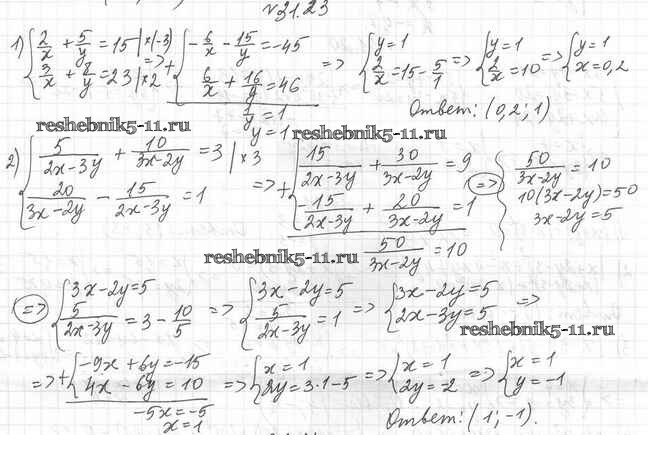 №31.23
1) { 2/x + 5/y = 15 | ×(-3) ; 3/x + 8/y = 23 | ×2 => + { -6/x - 15/y = -45 ; 6/x + 16/y = 46 => { y = 1 ; 2/x = 15 - 5/1 => { y = 1 ; 2/x = 10 => { y = 1 ; x = 0,2
1/y = 1
y = 1
Ответ: (0,2; 1)
reshebnik5-11.ru
2) { 5/(2x-3y) + 10/(3x-2y) = 3 | ×3 ; 20/(3x-2y) - 15/(2x-3y) = 1 => + { 15/(2x-3y) + 30/(3x-2y) = 9 ; -15/(2x-3y) + 20/(3x-2y) = 1 =>
50/(3x-2y) = 10
50/(3x-2y) = 10
10(3x-2y) = 50
3x-2y = 5
reshebnik5-11.ru
=> { 3x-2y = 5 ; 5/(2x-3y) = 3 - 10/5 => { 3x-2y = 5 ; 5/(2x-3y) = 1 => { 3x-2y = 5 ; 2x-3y = 5 =>
reshebnik5-11.ru
=> + { -9x + 6y = -15 ; 4x - 6y = 10 => { x = 1 ; 2y = 3·1-5 => { x = 1 ; 2y = -2 => { x = 1 ; y = -1
-5x = -5
x = 1
Ответ: (1; -1).